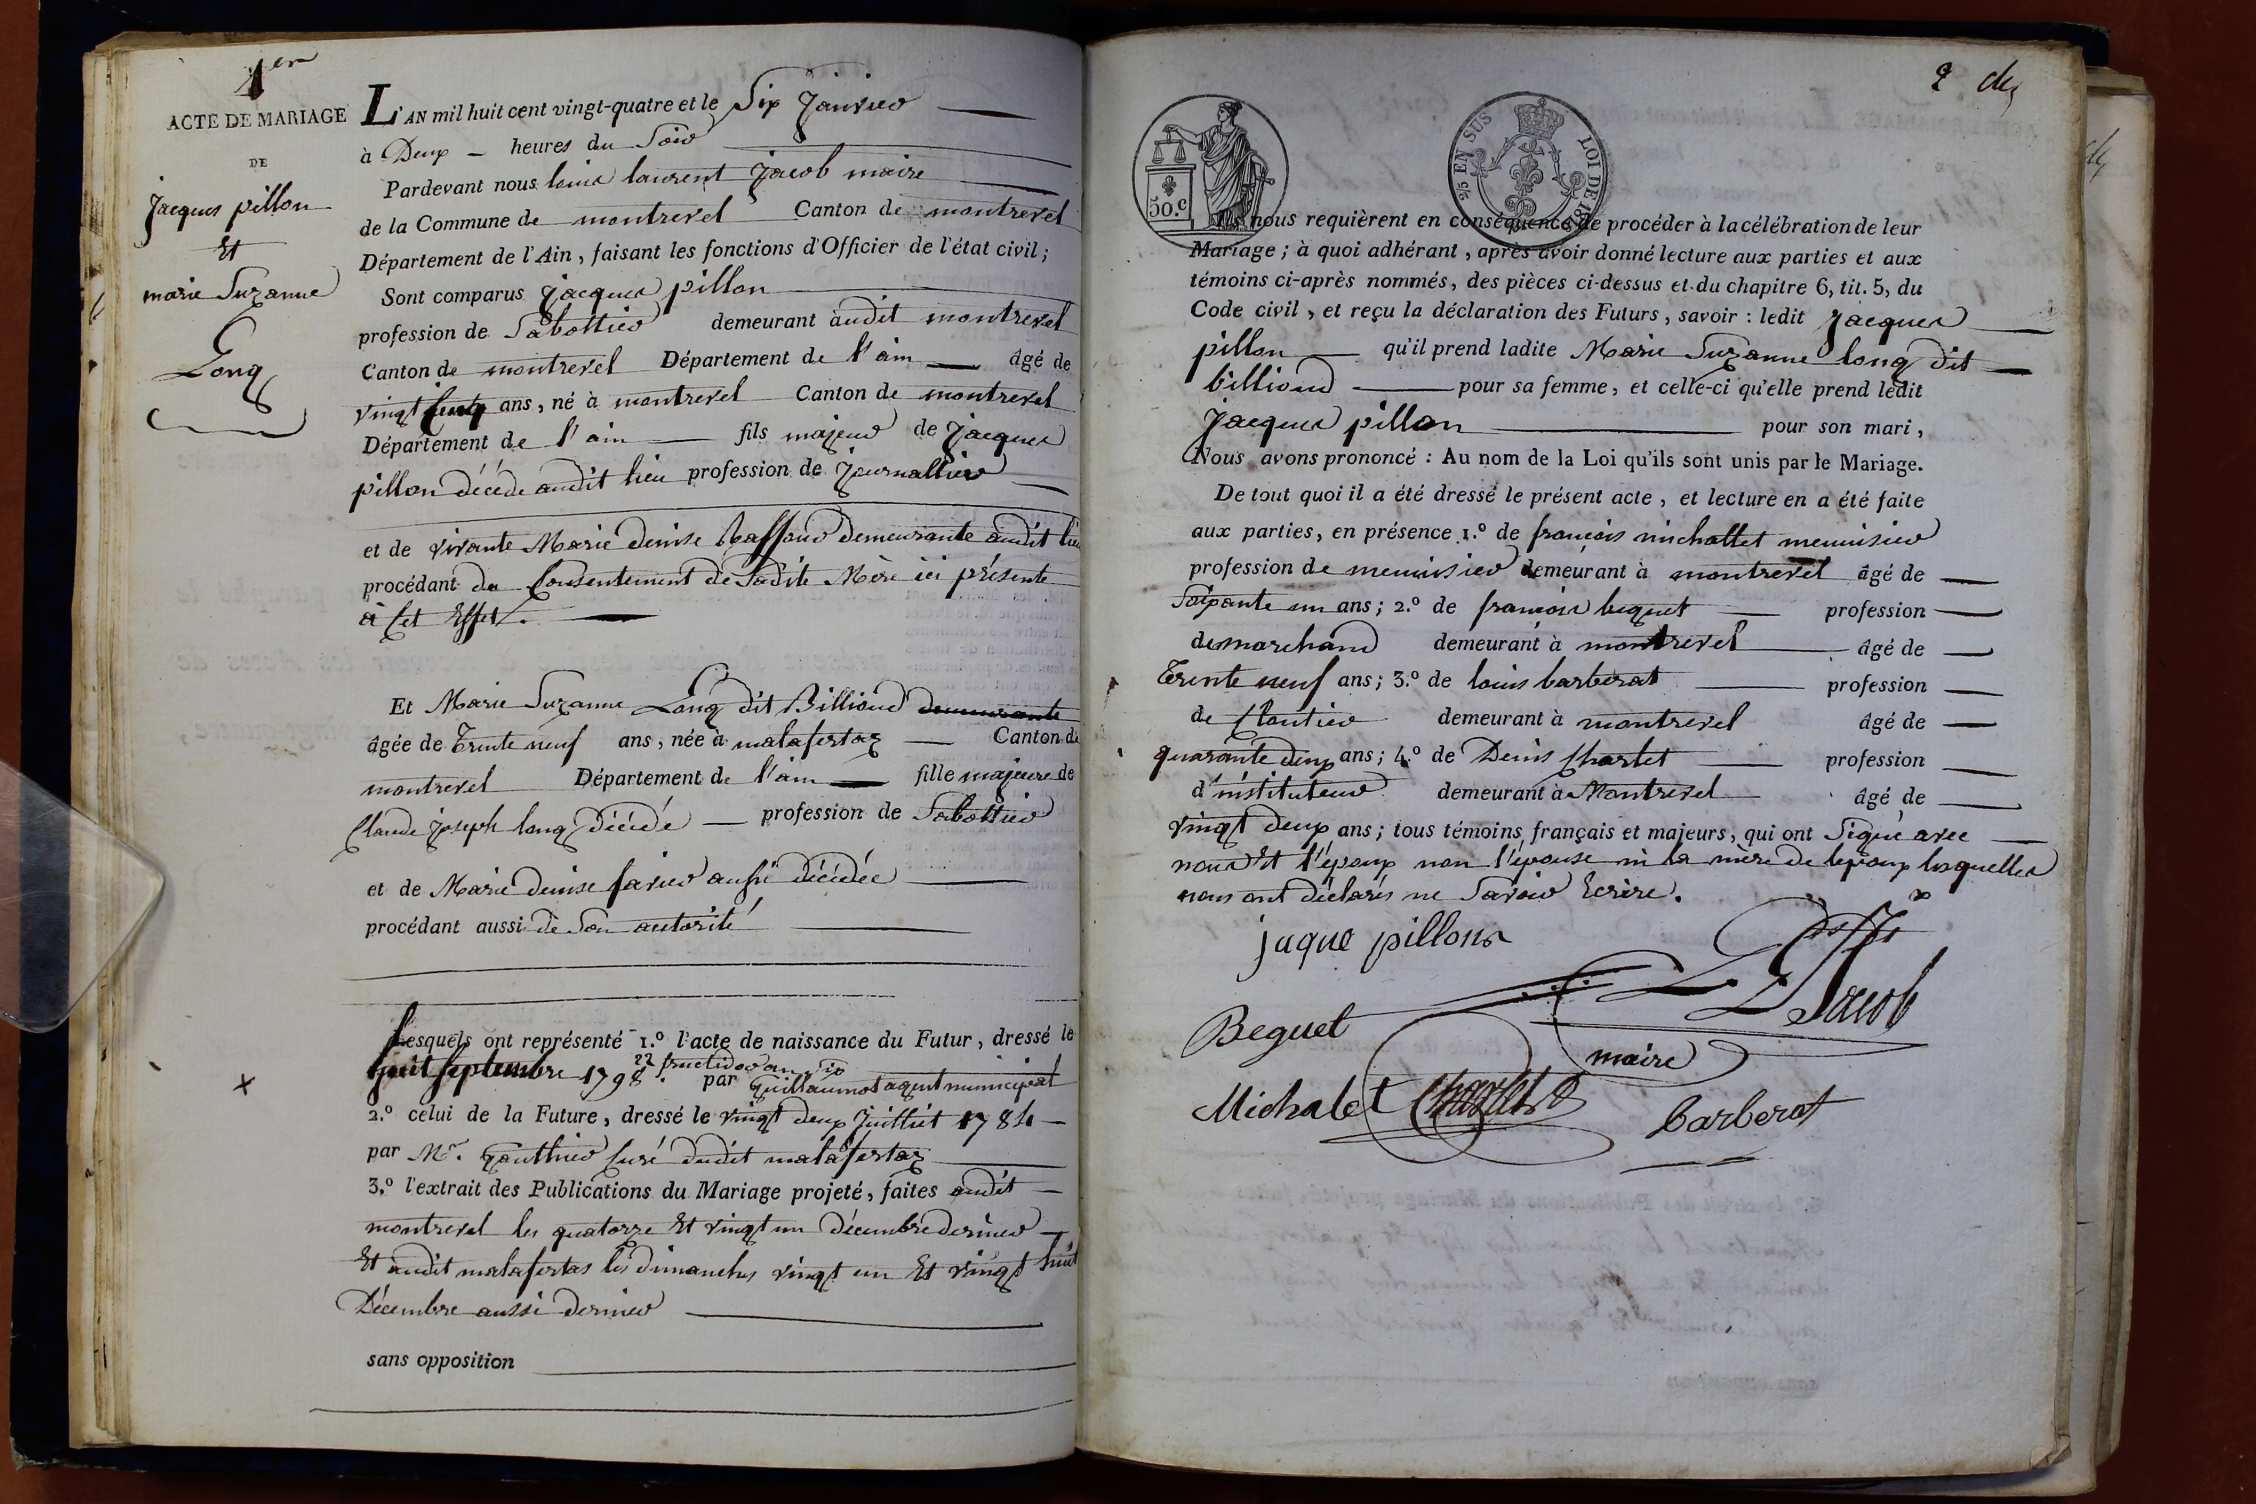 1er
ACTE DE MARIAGE
DE
Jacques pillon
Et
marie Suzanne
Long
L'AN mil huit cent vingt-quatre et le Six Janvier
à Deux heures du Soir
Pardevant nous louis laurent Jacob maire
de la Commune de montrevel Canton de montrevel
Département de l'Ain, faisant les fonctions d'Officier de l'état civil;
Sont comparus Jacques pillon
profession de Sabottier demeurant audit montrevel
Canton de montrevel Département de l'ain âgé de
vingt Cinq ans, né à montrevel Canton de montrevel
Département de l'ain fils majeur de Jacques
pillon décédé audit lieu profession de Journallier
et de vivante Marie denise demeurante audit lieu
procédant du Consentement de Sadite Mère ici présente
à Cet Effet.
Et Marie Suzanne Long dit Billioud demeurante
âgée de Trente neuf ans, née à malafertaz Canton de
montrevel Département de l'ain fille majeure de
Claude Joseph long décédé profession de Sabottier
et de Marie denise favier aussi décédée
procédant aussi de Son autorité
Lesquels ont représenté 1.º l'acte de naissance du Futur, dressé le
22 fructidor an Six
huit Septembre 1798. par Guillaumot agent municipal
2.º celui de la Future, dressé le vingt deux Juilliet 1784
par Mr. Gauthier Curé dudit malafertaz
3.º l'extrait des Publications du Mariage projeté, faites audit
montrevel les quatorze Et vingt un décembre dernier
Et audit malafertas les dimanches vingt un Et vingt huit
Décembre aussi dernier
sans opposition
2
50.c
2/5 EN SUS
LOI DE
Ils nous requièrent en conséquence de procéder à la célébration de leur
Mariage; à quoi adhérant, après avoir donné lecture aux parties et aux
témoins ci-après nommés, des pièces ci-dessus et du chapitre 6, tit. 5, du
Code civil, et reçu la déclaration des Futurs, savoir: ledit Jacques
pillon qu'il prend ladite Marie Suzanne long dit
billioud pour sa femme, et celle-ci qu'elle prend ledit
Jacques pillon pour son mari,
Nous avons prononcé: Au nom de la Loi qu'ils sont unis par le Mariage.
De tout quoi il a été dressé le présent acte, et lecture en a été faite
aux parties, en présence 1.º de francois michallet menuisier
profession de menuisier demeurant à montrevel âgé de
Soixante un ans; 2.º de francois beguet profession
de marchand demeurant à montrevel âgé de
Trente neuf ans; 3.º de louis barberat profession
de Cloutier demeurant à montrevel âgé de
quarante deux ans; 4.º de Denis Charlet profession
d'instituteur demeurant à Montrevel âgé de
vingt deux ans; tous témoins français et majeurs, qui ont Signé avec
nous Et l'époux non l'épouse ni la mère de l'époux lesquelles
nous ont déclarés ne Savoir Ecrire.
jaque pillon
Jacob
Beguet
maire
Michalet Charlet Barberat